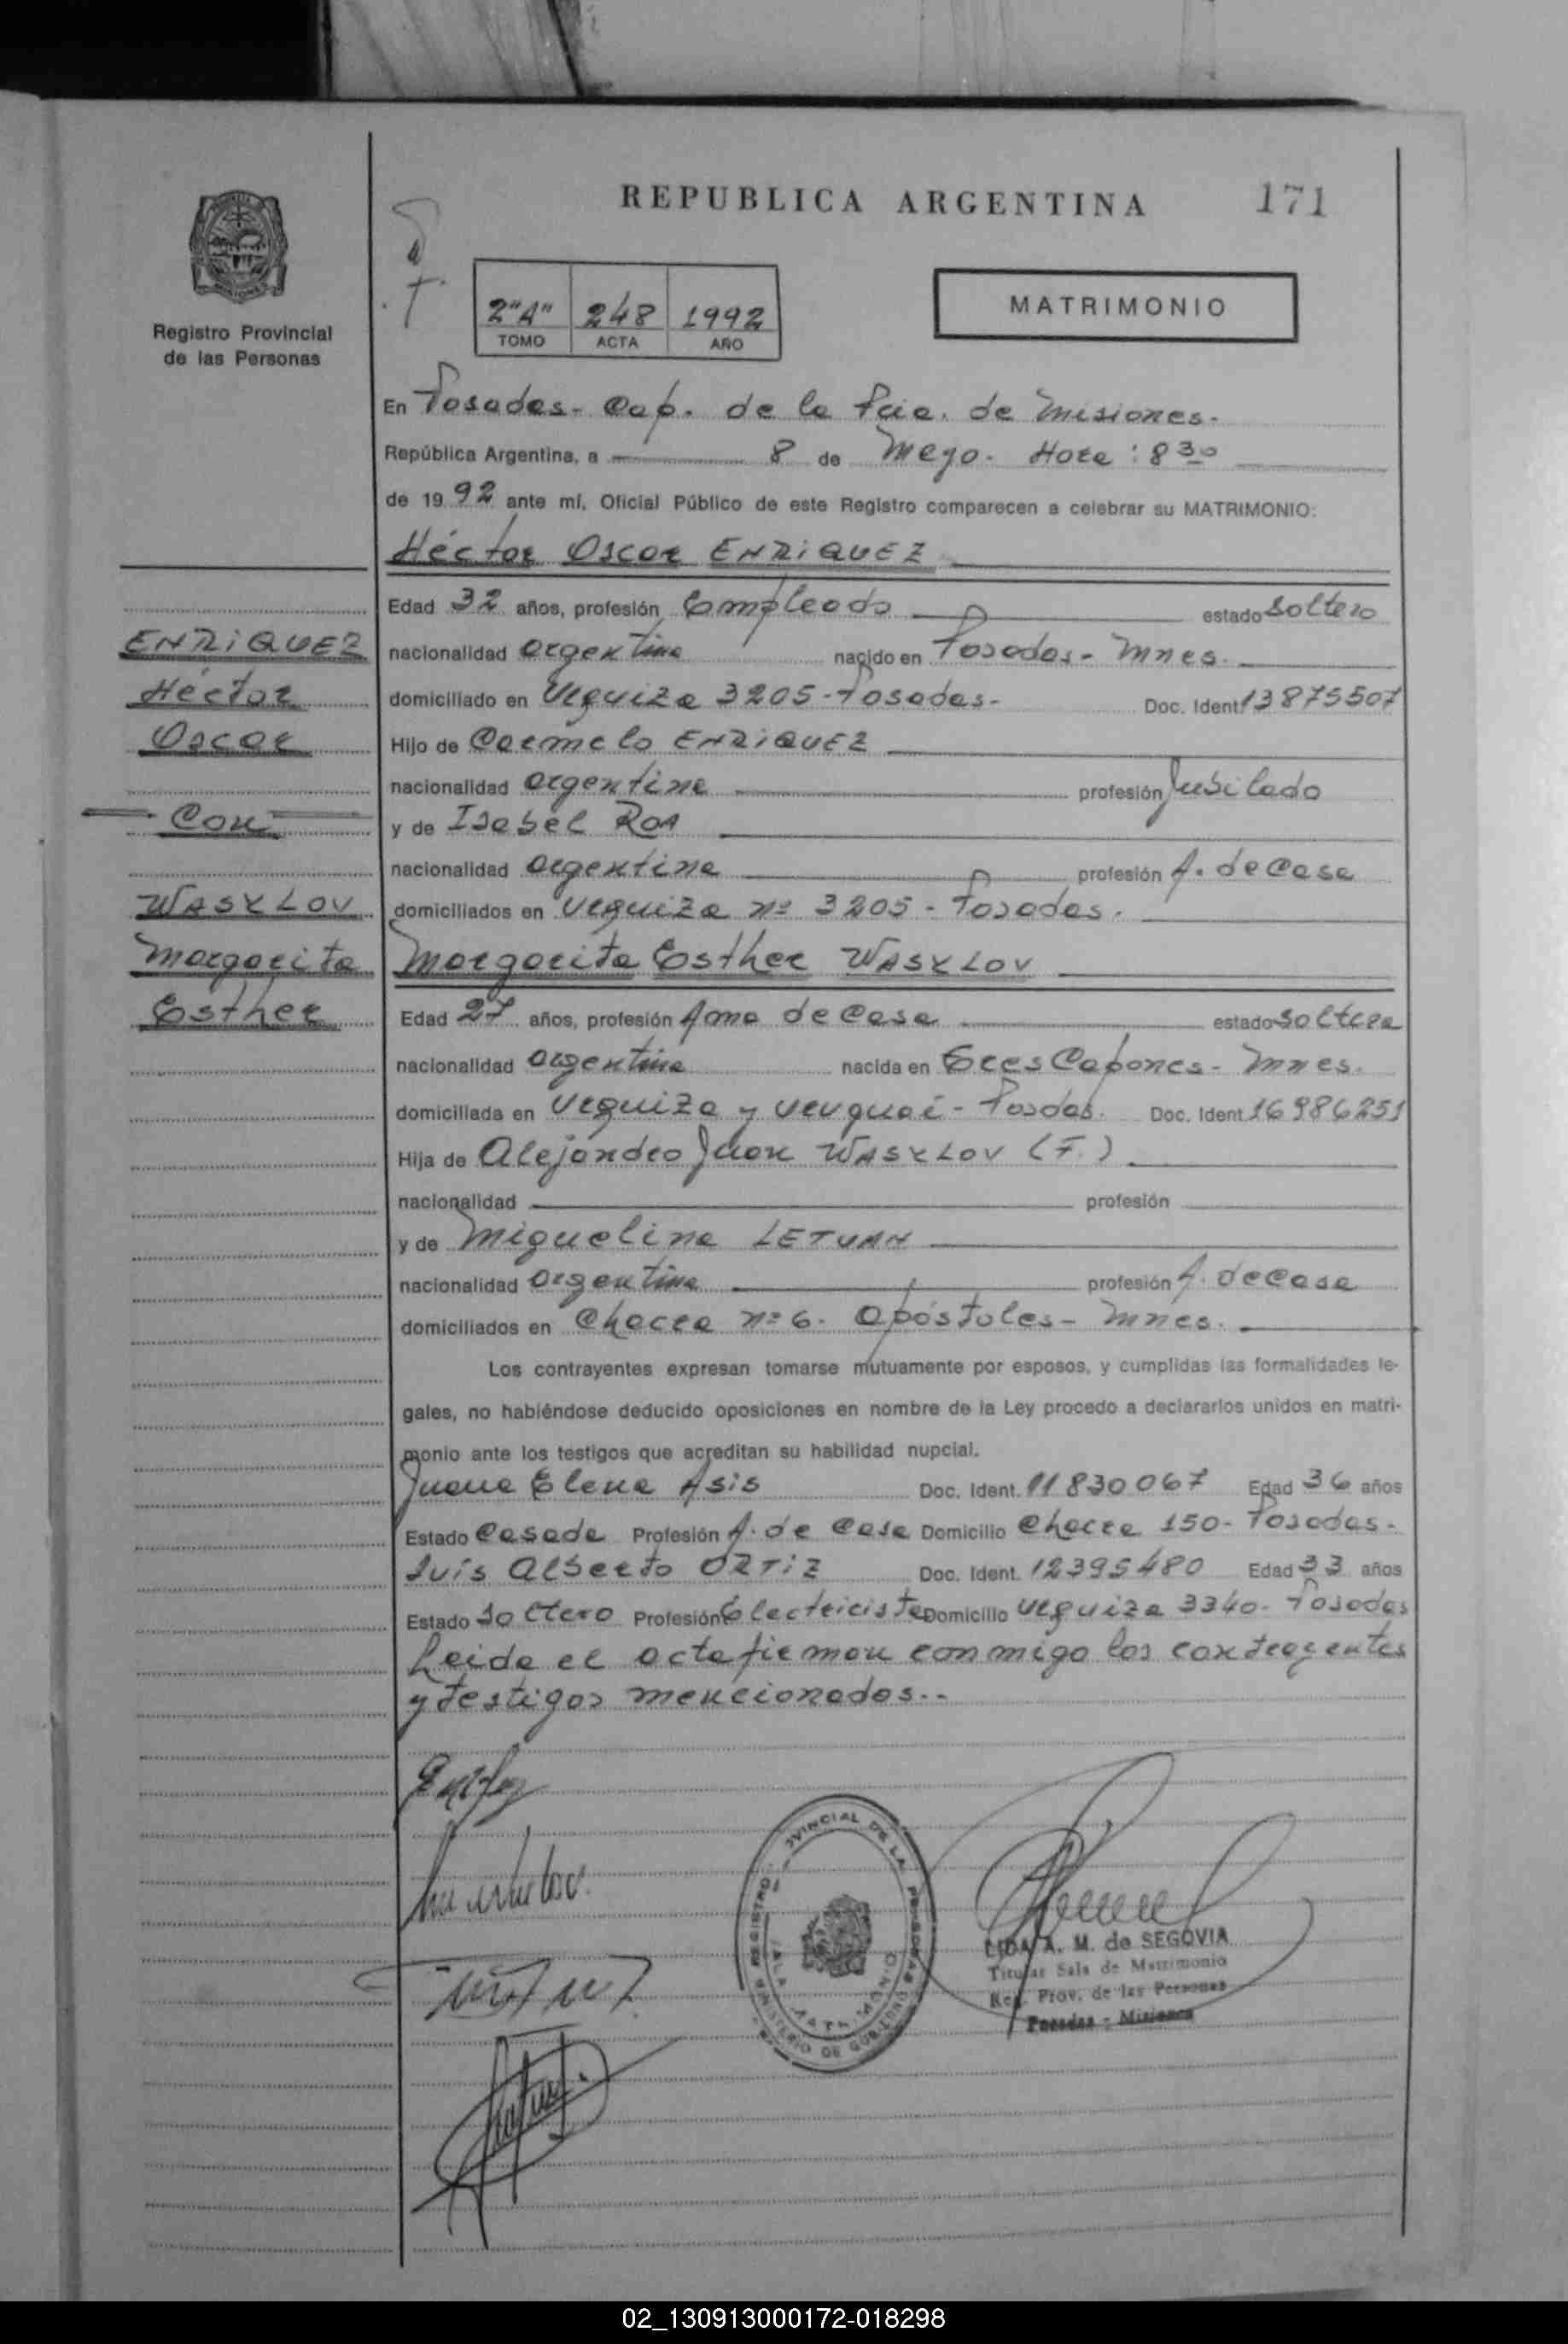 REPUBLICA ARGENTINA
171
Registro Provincial
de las Personas
2"A" 248 1992
TOMO ACTA AÑO
MATRIMONIO
En Posadas- Cap. de la Pcia. de Misiones-
República Argentina, a 8 de Mayo- Hora: 8 30
de 1992 ante mí, Oficial Público de este Registro comparecen a celebrar su MATRIMONIO:
Héctor Oscar ENRIQUEZ
Edad 32 años, profesión Empleado estado Soltero
ENRIQUEZ
nacionalidad argentina nacido en Posadas- Mnes.
Héctor
domiciliado en Urquiza 3205-Posadas- Doc. Ident. 13875507
Oscar
Hijo de Carmelo ENRIQUEZ
nacionalidad argentina profesión Jubilado
Con
y de Isabel ROA
nacionalidad argentina profesión A. de Casa
WASYLOV
domiciliados en Urquiza nº 3205 - Posadas.
Margarita
Margarita Esther WASYLOV
Esther
Edad 27 años, profesión Ama de Casa estado Soltera
nacionalidad argentina nacida en Tres Capones- Mnes.
domiciliada en Urquiza y Uruguai- Posdas. Doc. Ident 16986251
Hija de Alejandro Juan WASYLOV (F.)
nacionalidad profesión
y de Miguelina LETUAN
nacionalidad argentina profesión A. de Casa
domiciliados en Chacra nº 6. Apóstoles- Mnes.
Los contrayentes expresan tomarse mutuamente por esposos, y cumplidas las formalidades le-
gales, no habiéndose deducido oposiciones en nombre de la Ley procedo a declararlos unidos en matri-
monio ante los testigos que acreditan su habilidad nupcial.
Juana Elena Asis Doc. Ident. 11830067 Edad 36 años
Estado Casada Profesión A. de Casa Domicilio Chacra 150- Posadas-
Luis Alberto ORTIZ Doc. Ident. 12395480 Edad 33 años
Estado Soltero Profesión Electricista Domicilio Urquiza 3340- Posadas
Leida el acta firman conmigo los contrayentes
y testigos mencionados..-
REGISTRO PROVINCIAL DE LAS PERSONAS
SALA MATRIMONIO
MINISTERIO DE GOBIERNO
LIDA A. M. de SEGOVIA
Titular Sala de Matrimonio
Reg. Prov. de las Personas
Posadas - Misiones
02_130913000172-018298